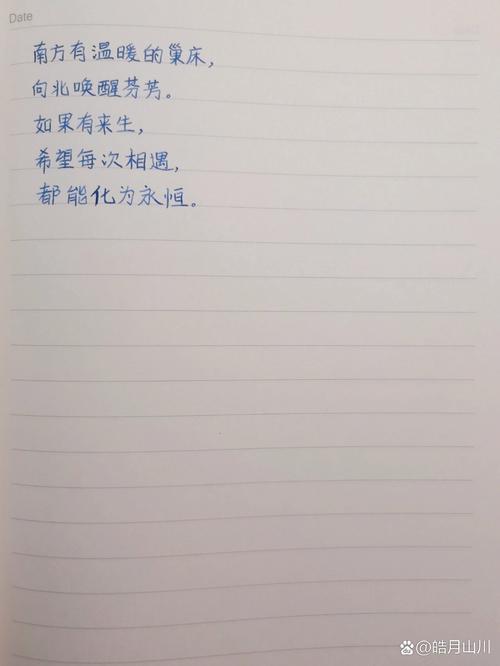 Date
南方有温暖的巢床，
向北唤醒芬芳。
如果有来生，
希望每次相遇，
都能化为永恒。
@皓月山川